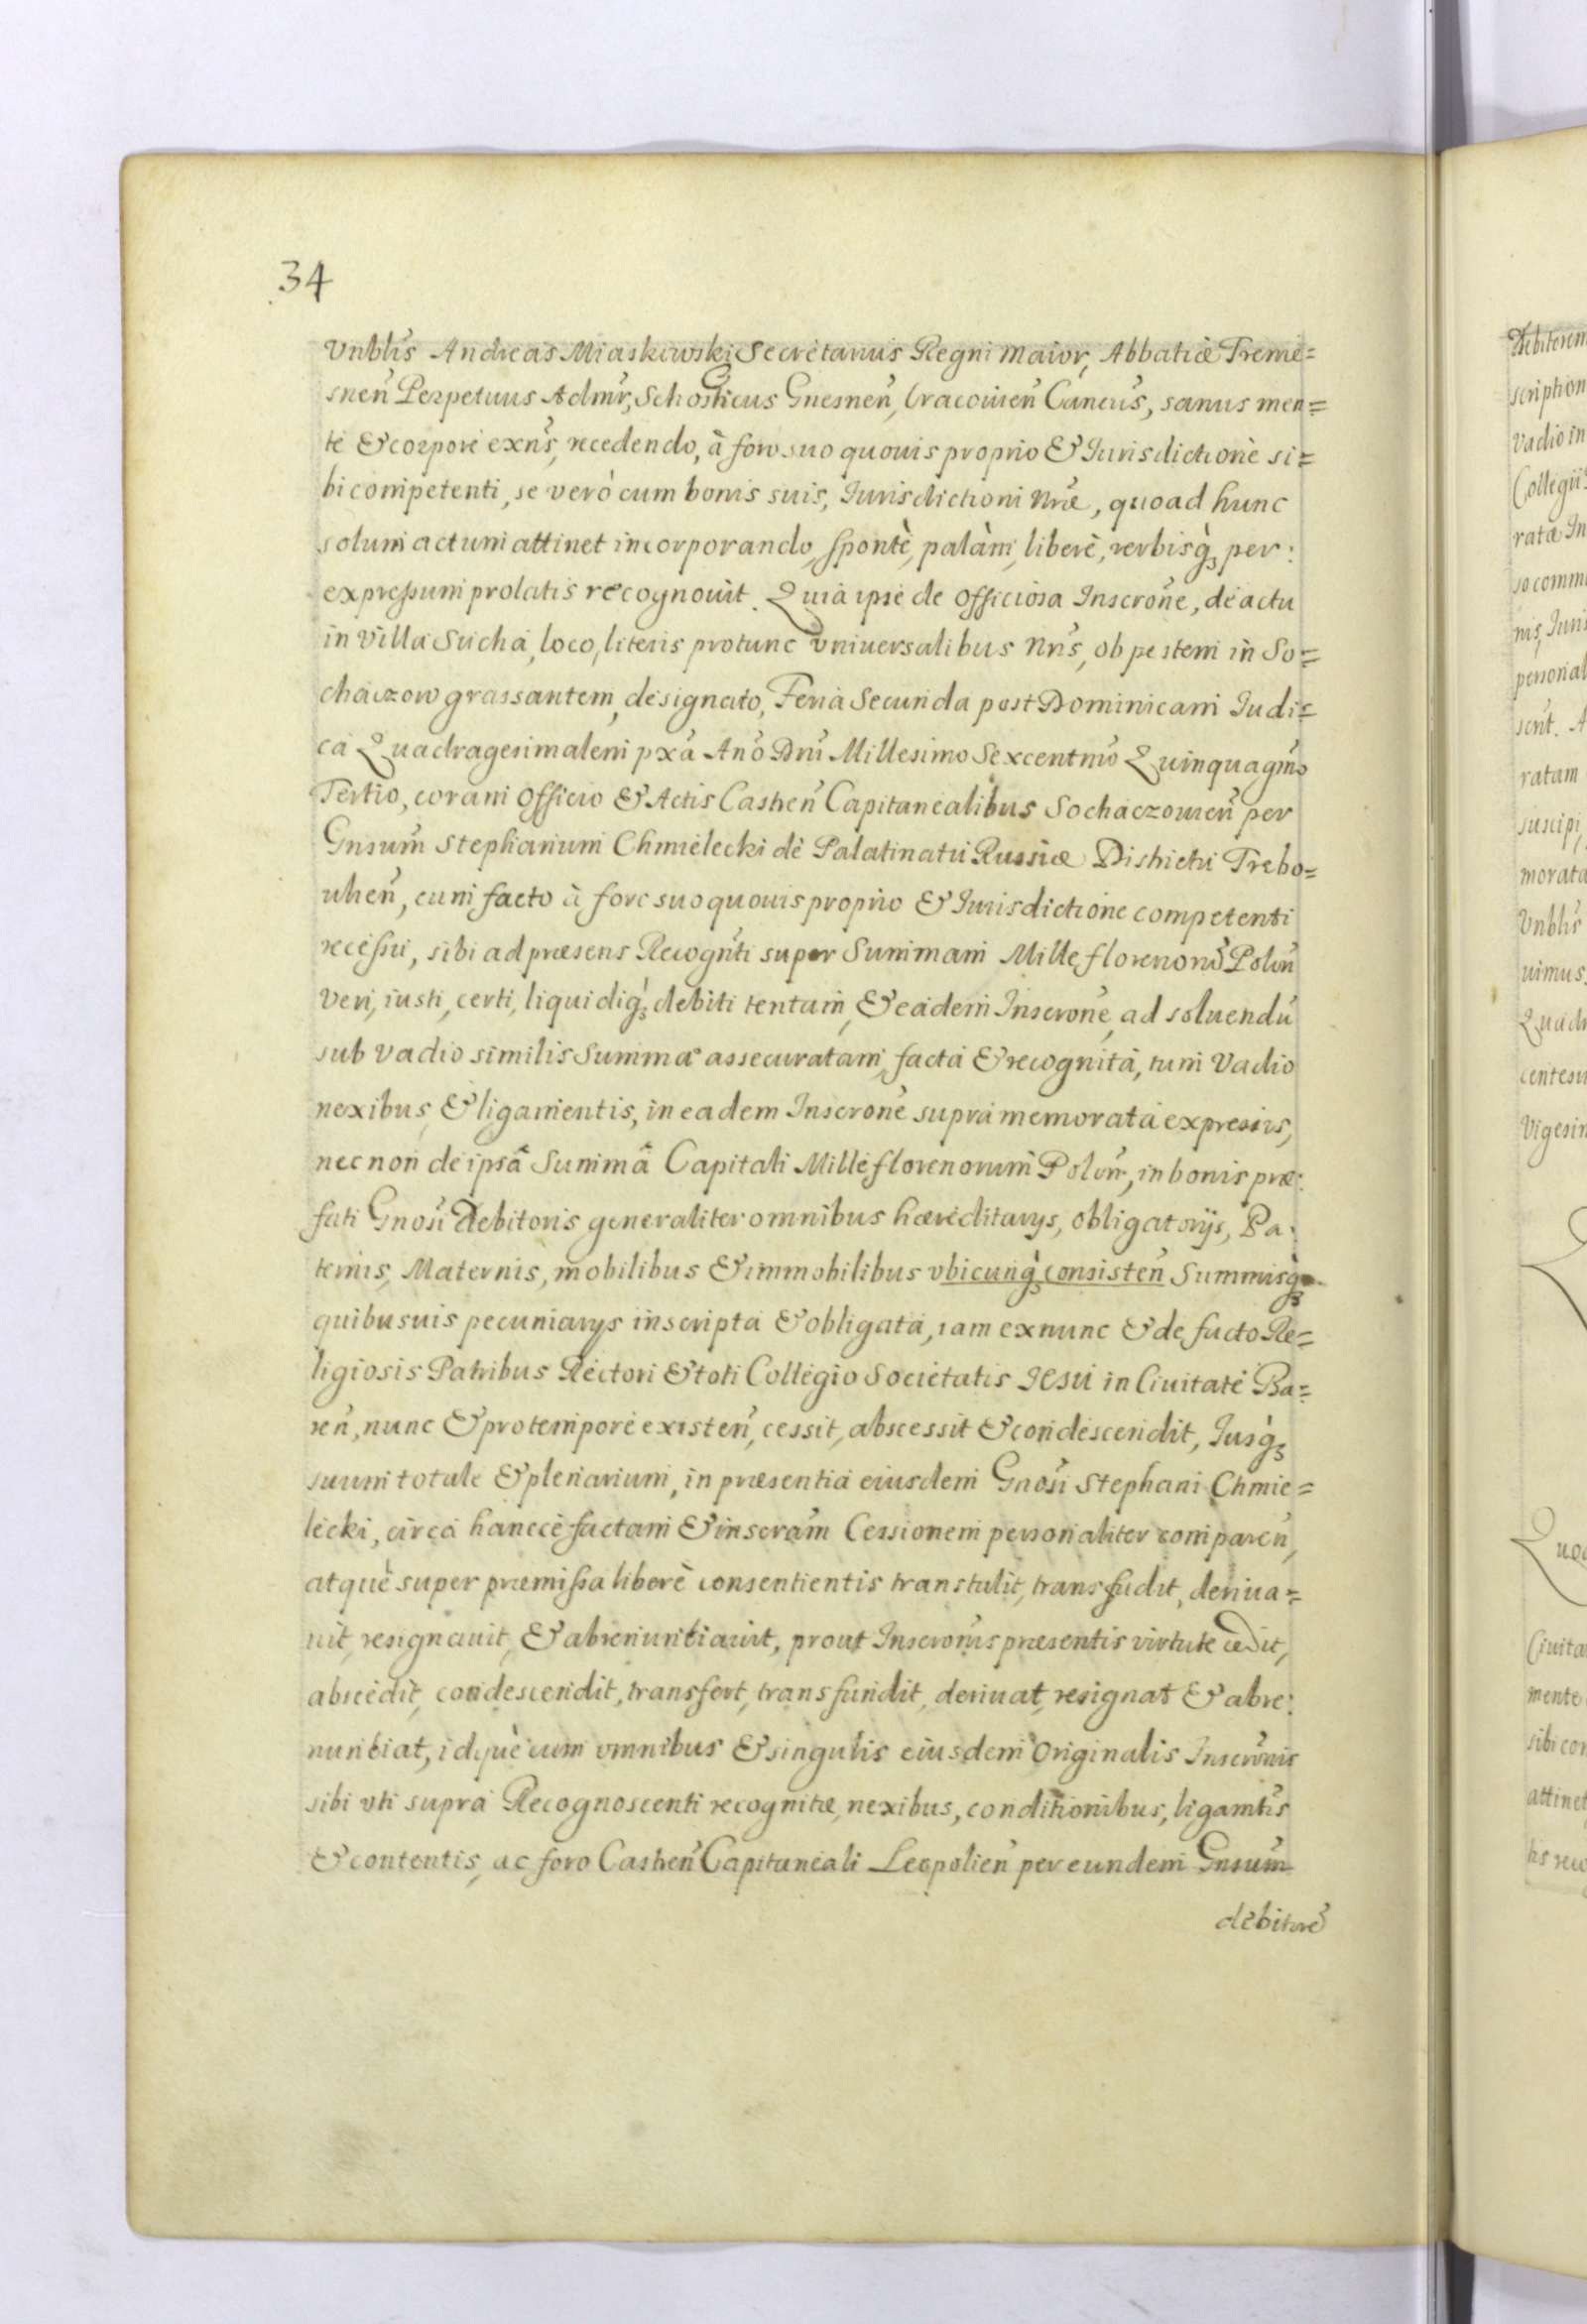 34
Vnblis Andreas Miaskowski Secretarius Regni Maior, Abbatiæ Treme=
snen̄ Perpetuus Admr̄, Scholticus Gnesnen̄, Cracouien̄ Cancūs, sanus men=
te & corpore exns̄, recedendo, à foro suo quouis proprio & Iurisdictione si=
bi competenti, se verò cum bonis suis, Iurisdictioni Nræ, quoad hunc
solum actum attinet incorporando, spontè, palàm, liberè, verbisq̀ꝫ per:
expressum prolatis recognouit. Quia ipse de Officiosa Inscrone, de actu
in Villa Sucha, loco, literis protunc vniuersalibus Nris̄, ob pestem in So=
chaczow grassantem, designato, Feria Secunda post Dominicam Iudi=
ca Quadragesimalem pxā Anō Dnī Millesimo Sexcentmō Quinquagmō
Tertio, coram Officio & Actis Castren̄ Capitanealibus Sochaczouien̄ per
Gnsum̄ Stephanum Chmielecki de Palatinatu Russiæ Districtu Trebo=
ulien̄, cum facto à foro suo quouis proprio & Iurisdictione competenti
recessu, sibi ad præsens Recognti super Summam Mille florenorū Polon̄
Veri, iusti, certi, liquidiq̀ꝫ debiti tentam, & eadem Inscrone, ad soluendū
sub vadio similis Summæ assecuratam, facta & recognita, tum Vadio
nexibus, & ligamentis, in eadem Inscrone supra memorata expressis,
nec non de ipsâ Summâ Capitali Mille florenorum Polon̄, in bonis præ:
fati Gnosi Debitoris generaliter omnibus hæreditarys, obligatorijs, Pa:
ternis, Maternis, mobilibus & immobilibus vbicunq̀ꝫ consisten̄ Summisq̀ꝫ
quibusuis pecuniarys inscripta & obligata, iam exnunc & de facto Re=
ligiosis Patribus Rectori & toti Collegio Societatis IESU in Ciuitate Ba=
ren̄, nunc & pro tempore existen̄, cessit, abscessit & condescendit, Iusq̀ꝫ
suum totale & plenarium, in præsentia eiusdem Gnosi Stephani Chmie=
lecki, circa hancce factam & inscram̄ Cessionem personaliter comparen̄,
atquè super præmissa liberè consentientis transtulit, transfudit, deriua=
uit, resignauit, & abrenuntiauit, prout Inscronis præsentis virtute cedit,
abscedit, condescendit, transfert, transfundit, deriuat, resignat & abre:
nuntiat, idquè cum omnibus & singulis eiusdem Originalis Inscronis
sibi vti supra Recognoscenti recognitæ, nexibus, conditionibus, ligamtis
& contentis, ac foro Castren̄ Capitaneali Leopolien̄ per eundem Gnsum̄
debitorē